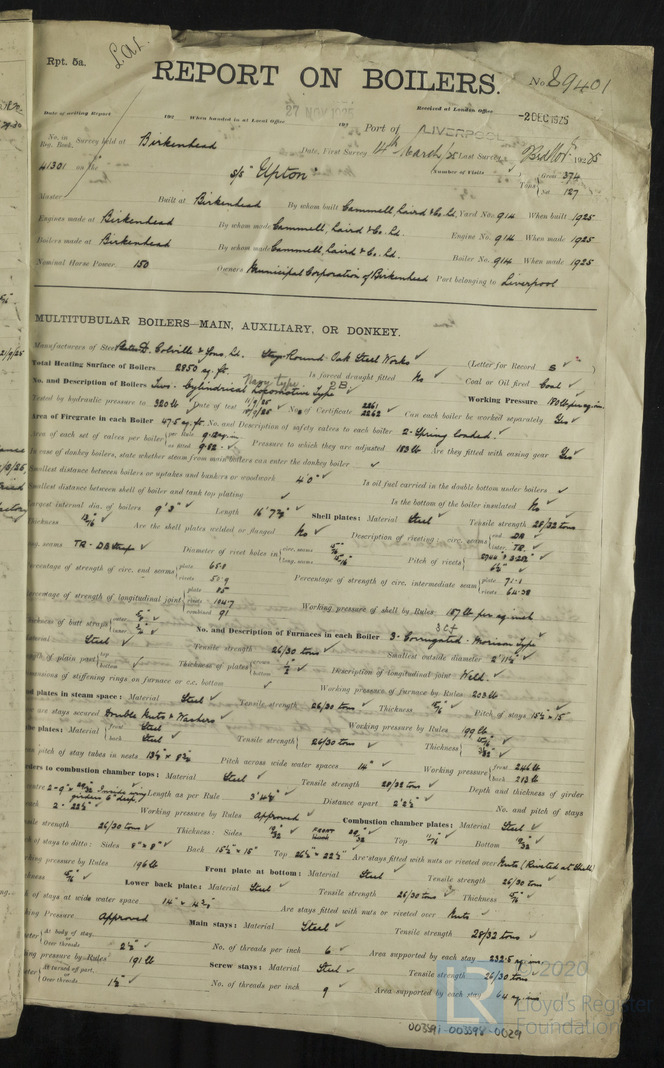 Rpt. 5a.
REPORT ON BOILERS.
No. 89401
Date of writing Report 192 When handed in at Local Office 27 NOV 1925 192 Port of LIVERPOOL
Received at London Office -2 DEC 1925
No. in Reg. Book. Survey held at Birkenhead Date, First Survey 14th March/25 Last Survey 1925
41301 on the S/S "Upton" (Number of Visits ) Tons Gross 374 Net 127
Master Built at Birkenhead By whom built Cammell, Laird & Co. Ld. Yard No. 914 When built 1925
Engines made at Birkenhead By whom made Cammell, Laird & Co. Ld. Engine No. 914 When made 1925
Boilers made at Birkenhead By whom made Cammell, Laird & Co. Ld. Boiler No. 914 When made 1925
Nominal Horse Power 150 Owners Municipal Corporation of Birkenhead Port belonging to Liverpool
MULTITUBULAR BOILERS—MAIN, AUXILIARY, OR DONKEY.
Manufacturers of Steel Plates D. Colville & Sons, Ld. Stay Round Oak Steel Works (Letter for Record S )
Total Heating Surface of Boilers 2850 sq. ft. Is forced draught fitted No Coal or Oil fired Coal
No. and Description of Boilers Two Cylindrical Navy type 2B Working Pressure 180 lb per sq. in.
Tested by hydraulic pressure to 320 lb Date of test No. of Certificate 2261 2262 Can each boiler be worked separately Yes
Area of Firegrate in each Boiler 47.5 sq. ft. No. and Description of safety valves to each boiler 2 - Spring loaded.
Area of each set of valves per boiler per Rule as fitted 9.82 Pressure to which they are adjusted 183 lb Are they fitted with easing gear Yes
In case of donkey boilers, state whether steam from main boilers can enter the donkey boiler
Smallest distance between boilers or uptakes and bunkers or woodwork 4' 0" Is oil fuel carried in the double bottom under boilers
Smallest distance between shell of boiler and tank top plating Is the bottom of the boiler insulated No
Largest internal dia. of boilers 9' 3" Length 16' 7 Shell plates: Material Steel Tensile strength 28/32 tons
Thickness Are the shell plates welded or flanged No Description of riveting: circ. seams end DR inter. TR.
long. seams TR - DB Straps Diameter of rivet holes in circ. seams long. seams Pitch of rivets
Percentage of strength of circ. end seams plate 65.8 rivets Percentage of strength of circ. intermediate seam plate rivets 64.38
Percentage of strength of longitudinal joint plate 85 rivets 104.7 combined 91 Working pressure of shell by Rules 187 lb per sq. inch
Thickness of butt straps outer inner No. and Description of Furnaces in each Boiler 3 - Corrugated - Morison Type
Material Steel Tensile strength 26/30 tons Smallest outside diameter 2' 11
Length of plain part top bottom Thickness of plates crown bottom Description of longitudinal joint Weld.
Dimensions of stiffening rings on furnace or c.c. bottom Working pressure of furnace by Rules 203 lb
End plates in steam space: Material Steel Tensile strength 26/30 tons Thickness Pitch of stays 15½" x 15"
How are stays secured Double Nuts & Washers Working pressure by Rules 199 lb
Tube plates: Material front Steel back Steel Tensile strength 26/30 tons Thickness
Mean pitch of stay tubes in nests Pitch across wide water spaces 14" Working pressure front 246 lb back 213 lb
Girders to combustion chamber tops: Material Steel Tensile strength 28/32 tons Depth and thickness of girder
Length as per Rule Distance apart No. and pitch of stays
Working pressure by Rules Approved Combustion chamber plates: Material Steel
Tensile strength 26/30 tons Thickness: Sides Back Top Bottom
Pitch of stays to ditto: Sides 8" x 8" Back 15½" x 15" Top Are stays fitted with nuts or riveted over Nuts (Riveted at Shell)
Working pressure by Rules 196 lb Front plate at bottom: Material Steel Tensile strength 26/30 tons
Thickness Lower back plate: Material Steel Tensile strength 26/30 tons Thickness
Pitch of stays at wide water space Are stays fitted with nuts or riveted over Nuts
Working Pressure Approved Main stays: Material Steel Tensile strength 28/32 tons
Diameter At body of stay, or Over threads No. of threads per inch 6 Area supported by each stay 232.5 sq. ins.
Working pressure by Rules 191 lb Screw stays: Material Steel Tensile strength 26/30 tons
Diameter At turned off part, or Over threads 1½" No. of threads per inch 9 Area supported by each stay 64 sq. ins.
© 2020
Lloyd's Register
Foundation
003591-003598-0029